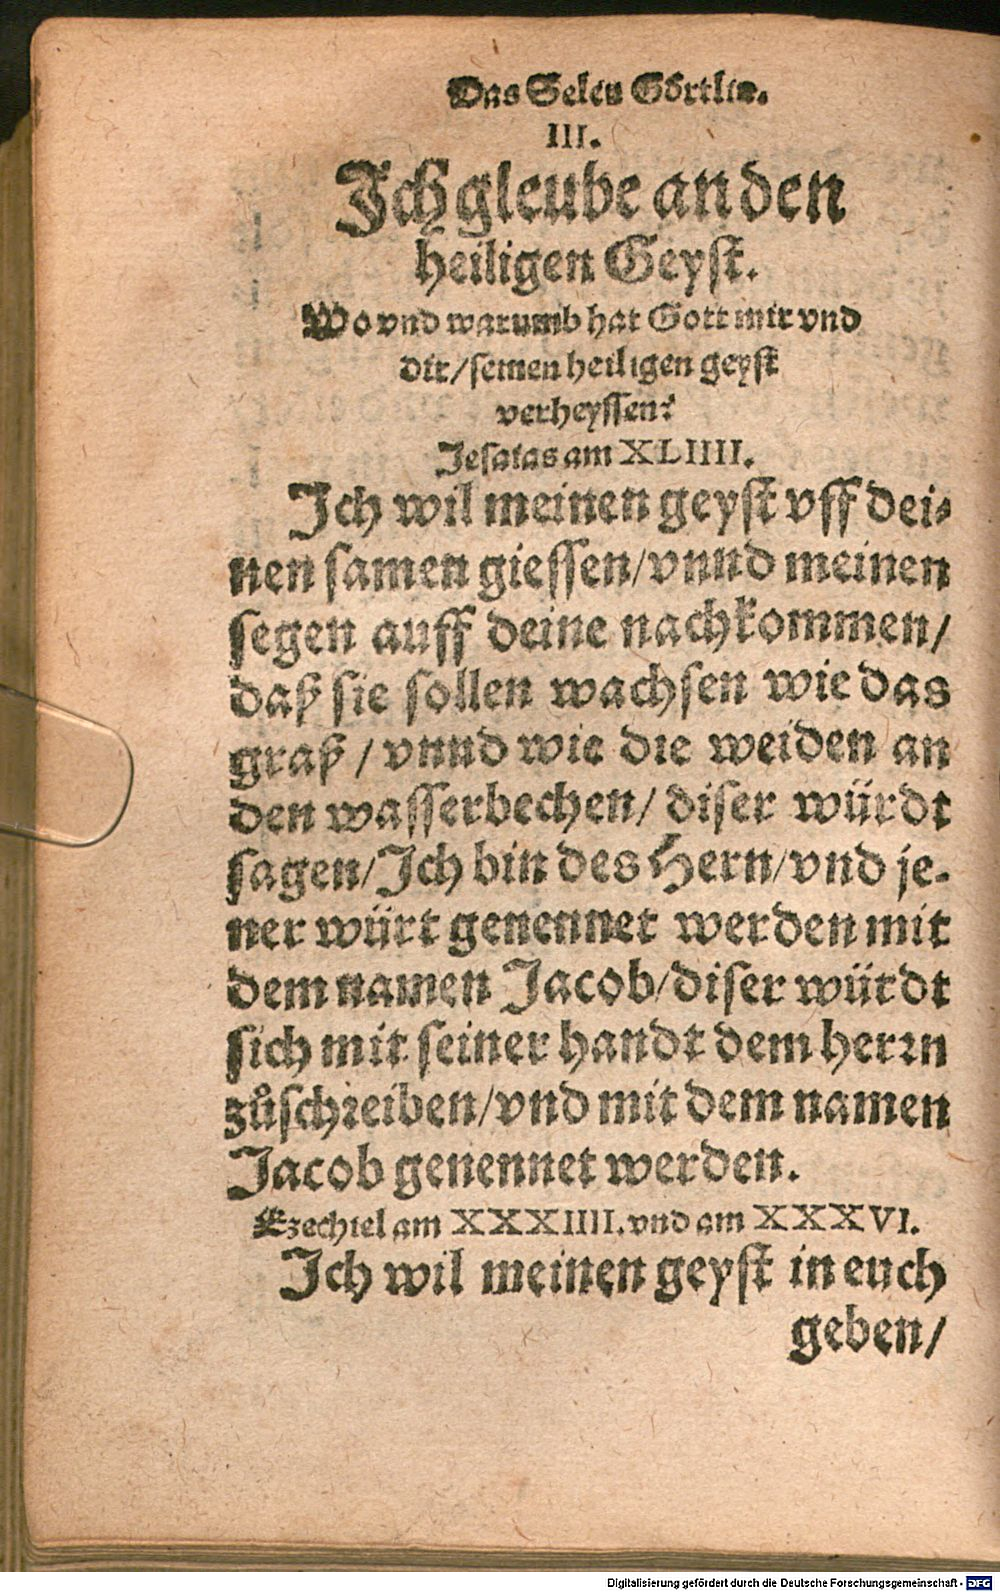 Das Selen Görtlin.
III.
Ich gleube an den
heiligen Geyst.
Wo vnd warumb hat Gott mir vnd
dir/ seinen heiligen geyst
verheyssen?
Jesaias am XLIIII.
Ich wil meinen geyst vff dei-
nen samen giessen/ vnnd meinen
segen auff deine nachkommen/
daß sie sollen wachsen wie das
graß / vnnd wie die weiden an
den wasserbechen/ diser würdt
sagen/ Ich bin des Hern/ vnd je-
ner würt genennet werden mit
dem namen Jacob/ diser würdt
sich mit seiner handt dem herrn
zůschreiben/ vnd mit dem namen
Jacob genennet werden.
Ezechiel am XXXIIII. vnd am XXXVI.
Ich wil meinen geyst in euch
geben/
Digitalisierung gefördert durch die Deutsche Forschungsgemeinschaft - DFG